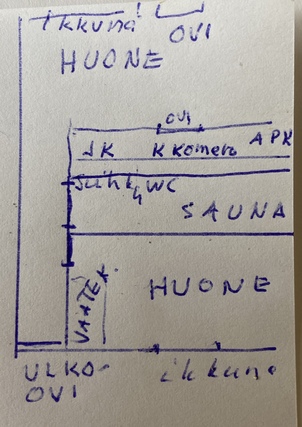 ikkuna
OVI
HUONE
OVI
JK K Komero APK
Suihk WC
SAUNA
VAATEK.
HUONE
ULKO-
OVI
ikkuna